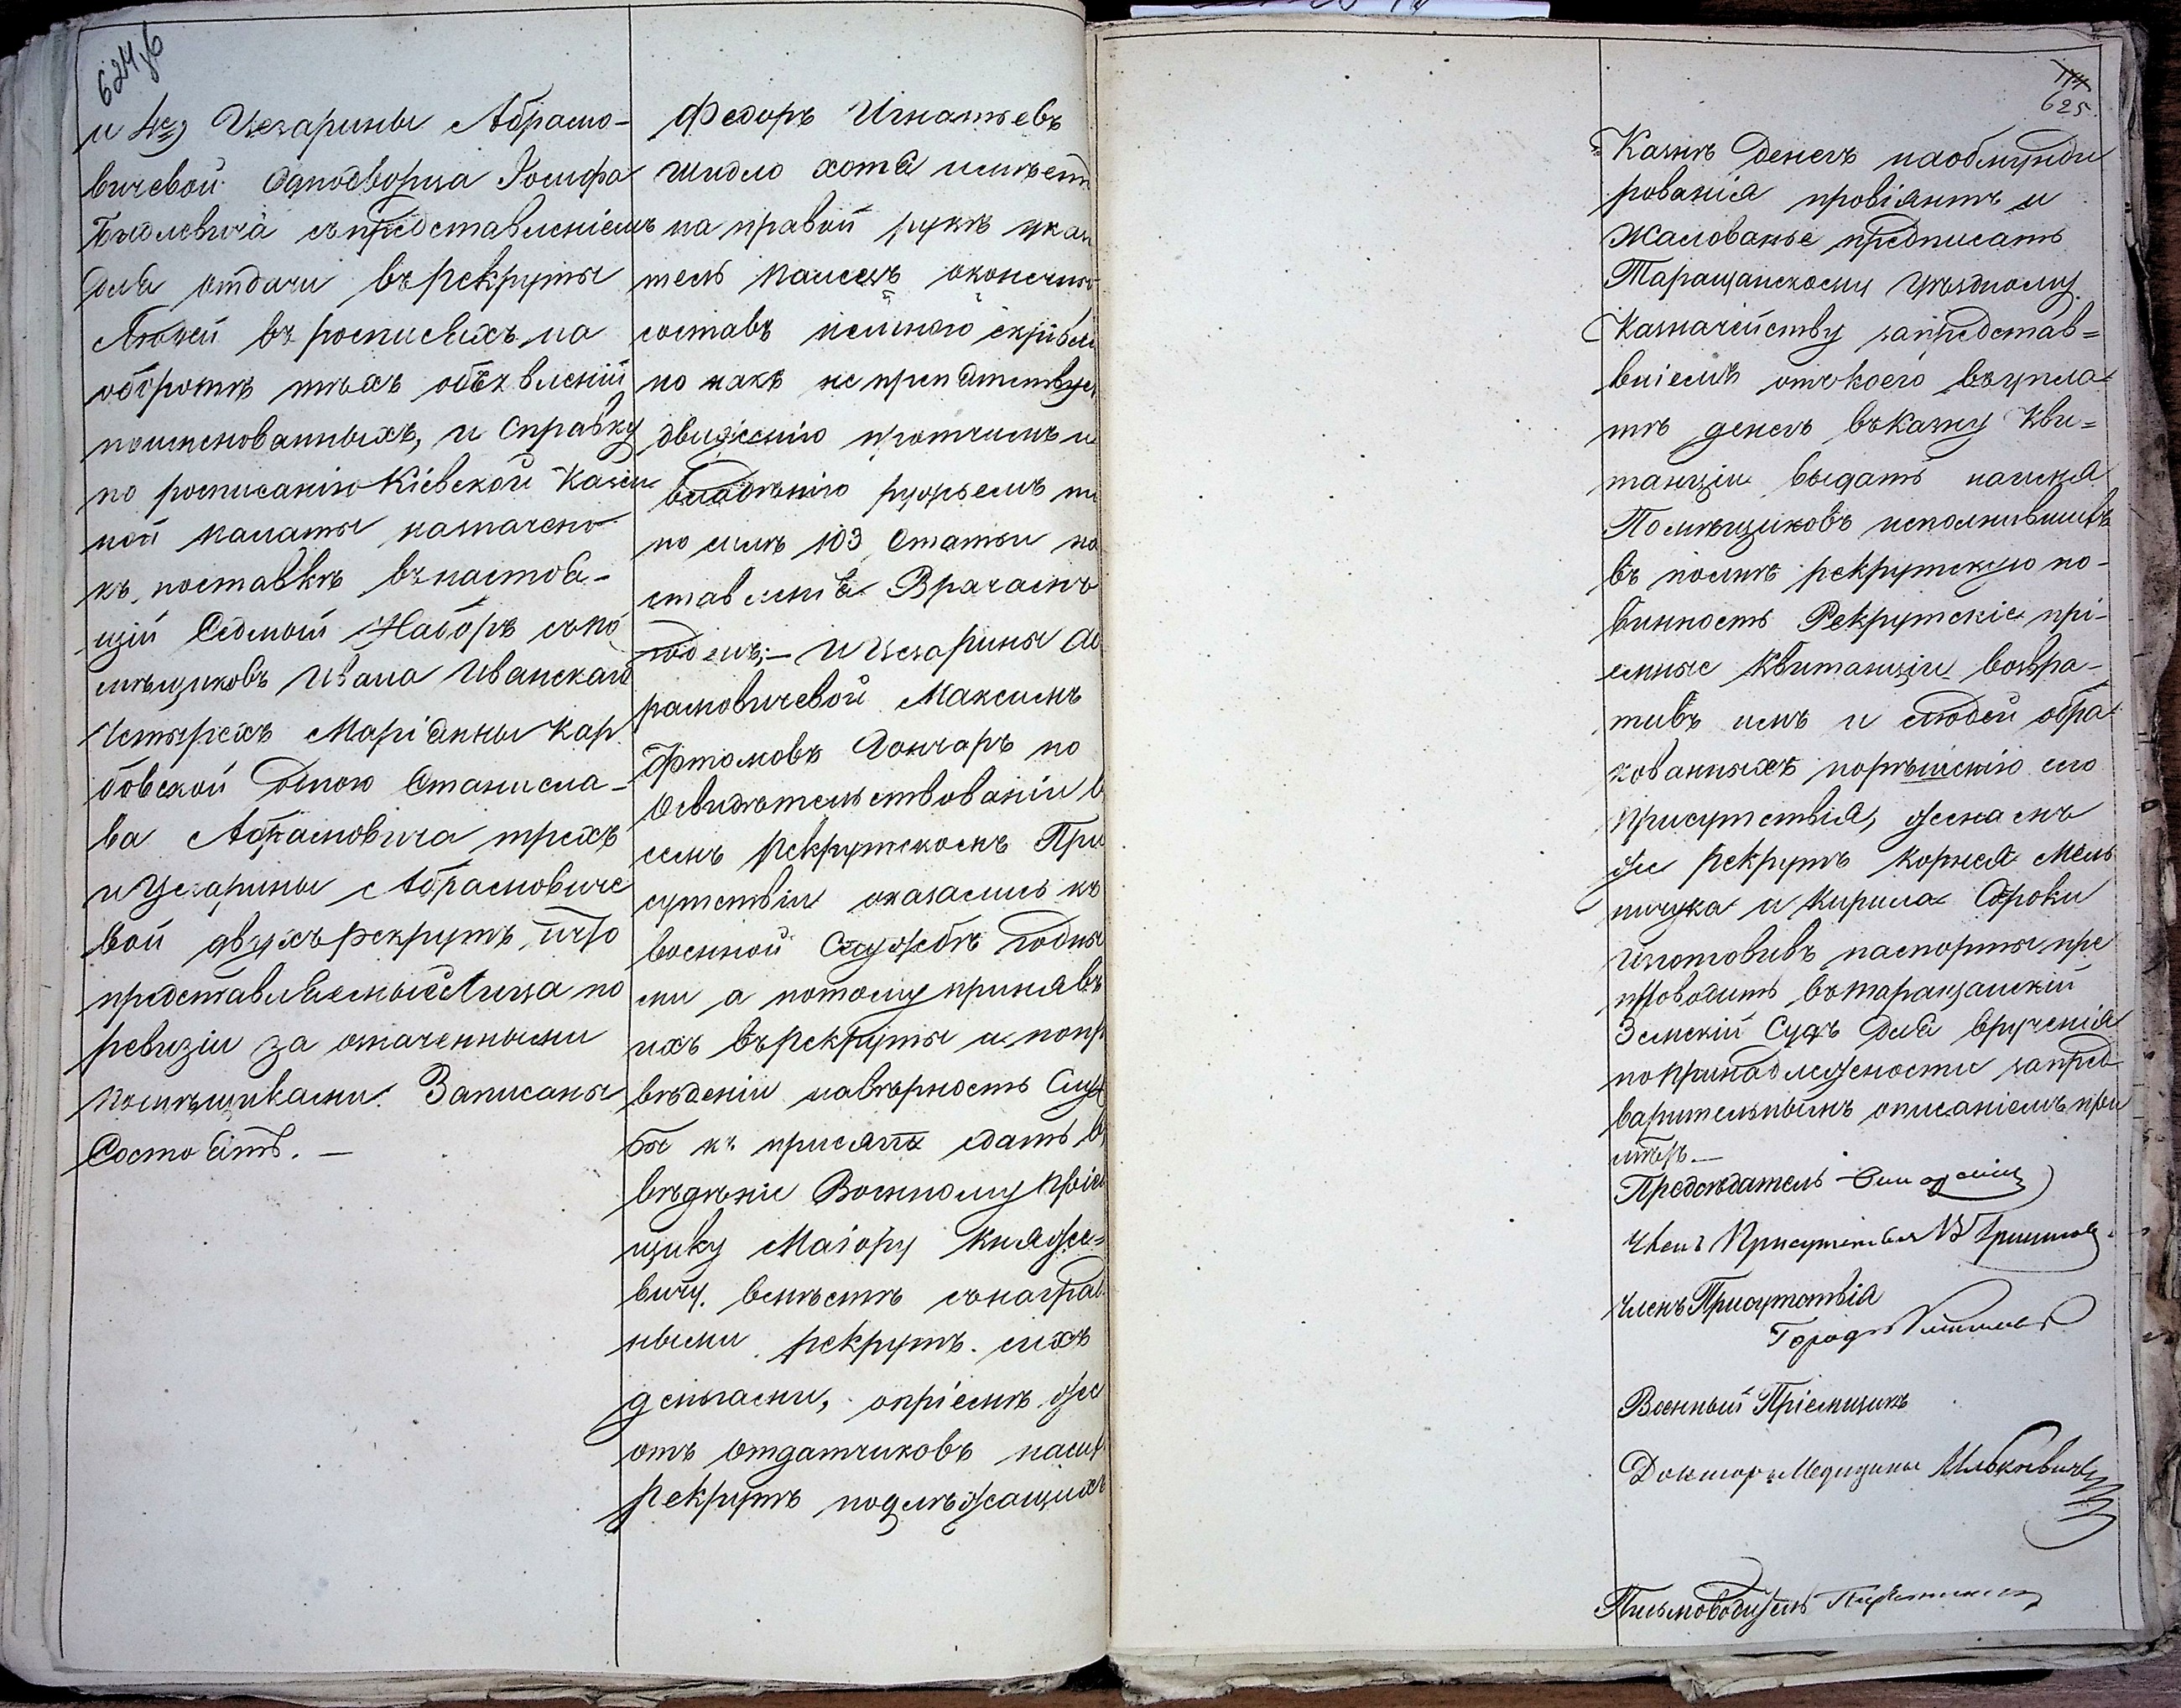 624 об
и 4е) Цезарины Абрамо-
вичевой Однодворца Іосифа
Бидлевича съ представленіемъ
для отдачи въ рекруты
Людей въ росписяхъ на
оборотѣ тѣхъ объявленій
поименованныхъ, и справку
по росписанію Кіевской Казен
ной палаты назначено
къ поставкѣ въ настоя-
щій Седмый Наборъ съ по
мѣщиковъ Ивана Иванскаго
Четырехъ Маріанны Кар
бовской одного Станисла-
ва Абрамовича трехъ
и Цезарины Абрамовиче
вой двухъ рекрутъ, что
представляемые Лица по
ревизіи за означенными
помѣщиками Записаны
Состоятъ. —
Федоръ Игнатьевъ
Шидло хотя имѣетъ
на правой рукѣ указ
тель палецъ оконечный
составъ немного скривле
но какъ не препятствуе
движенію прочимъ и
владѣнію ружьемъ ни
по силѣ 103 Статьи на
ставленія Врачамъ
годенъ; — и Цезарины Аб
рамовичевой Максимъ
Артомовъ Гончаръ по
Освидѣтельствованіи в
семъ Рекрутскомъ При
сутствіи оказались къ
военной Службѣ годны
ми а потому принявъ
ихъ въ рекруты и попр
вѣденіи на вѣрность Служ
бы къ присягѣ сдать в
вѣдѣніе Военному пріем
щику Маіору Княже-
вичу вмѣстѣ съ наград
ными рекрутъ сихъ
деньгами, о пріемѣ же
отъ отдатчиковъ на сих
рекрутъ подлѣжащихъ
625
Казнѣ денегъ на обмунди
рованія провіянтъ и
Жалованье предписать
Таращанскому Уѣздному
Казначейству за представ=
вніемъ отъ коего въ упла-
тѣ денегъ въ казну Кви=
танціи выдать на имя
Помѣщиковъ исполнившихъ
въ полнѣ рекрутскую по-
винность Рекрутскіе прі-
емные Квитанціи возвра-
тивъ имъ и людей обра-
кованныхъ по рѣшенію сего
Присутствія, женамъ
же рекрутъ Корнея Мель
ничука и Кирила Сороки
изготовивъ паспорты пре
проводить въ таращанскій
Земскій Судъ для врученія
по принадлежности за пред
варительнымъ описаніемъ при
мѣтъ.—
Предсѣдатель
Членъ Присутствія
Членъ Присутствія
Военный Пріемщикъ
Докторъ Медицины
Письмоводитель